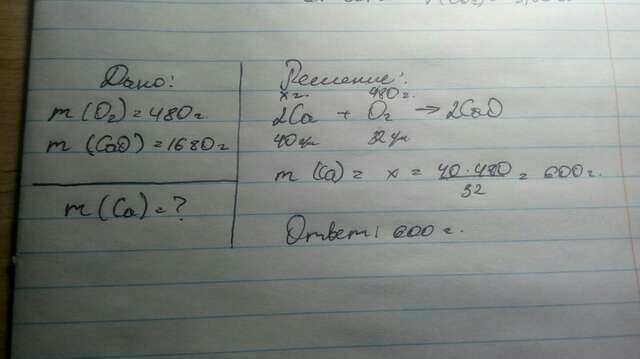 Дано:
m (O₂) = 480 г.
m (CaO) = 1680 г
m (Ca) = ?
Решение:
x г. 480 г.
2Ca + O₂ → 2CaO
m (Ca) = x = 40·480 / 32 = 600 г.
Ответ: 600 г.